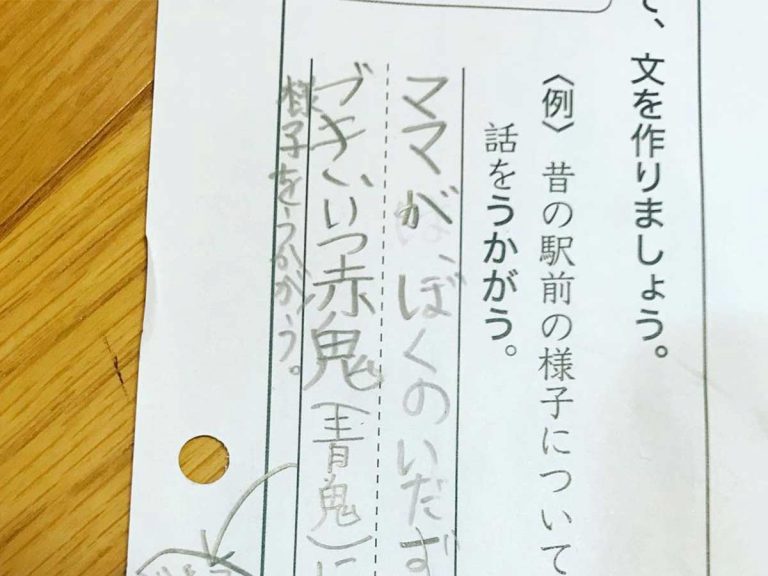 て、文を作りましょう。
〈例〉昔の駅前の様子について
話をうかがう。
ママが、ぼくのいだず
づき、いつ赤鬼(青鬼)に
様子をうかがう。